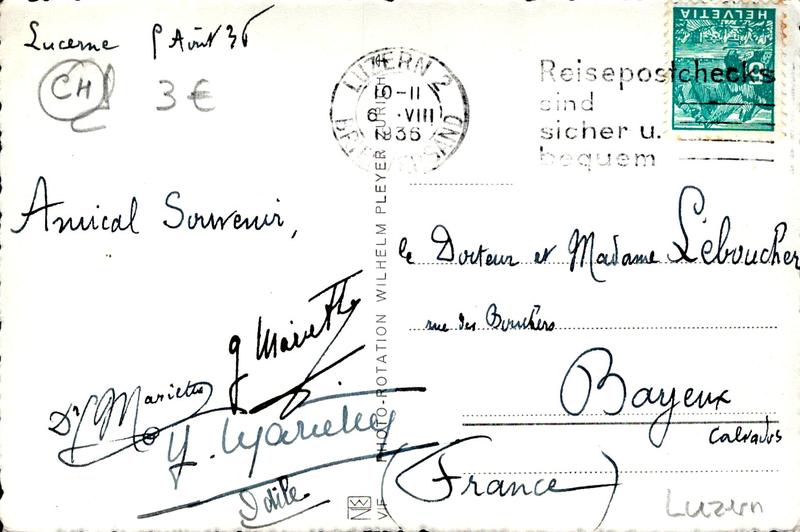 Lucerne Août 36
CH
3 €
Amical Souvenir,
g Mariette
Dr Mariette
Y. Mariette
Odile
PHOTO-ROTATION WILHELM PLEYER ZURICH
VF
HELVETIA
LUZERN 2
10-11
6. VIII
1936
Reisepostchecks
sind
sicher u.
bequem
le Docteur et Madame Léboucher
rue des Bouchers
Bayeux
Calvados
(France)
Luzern